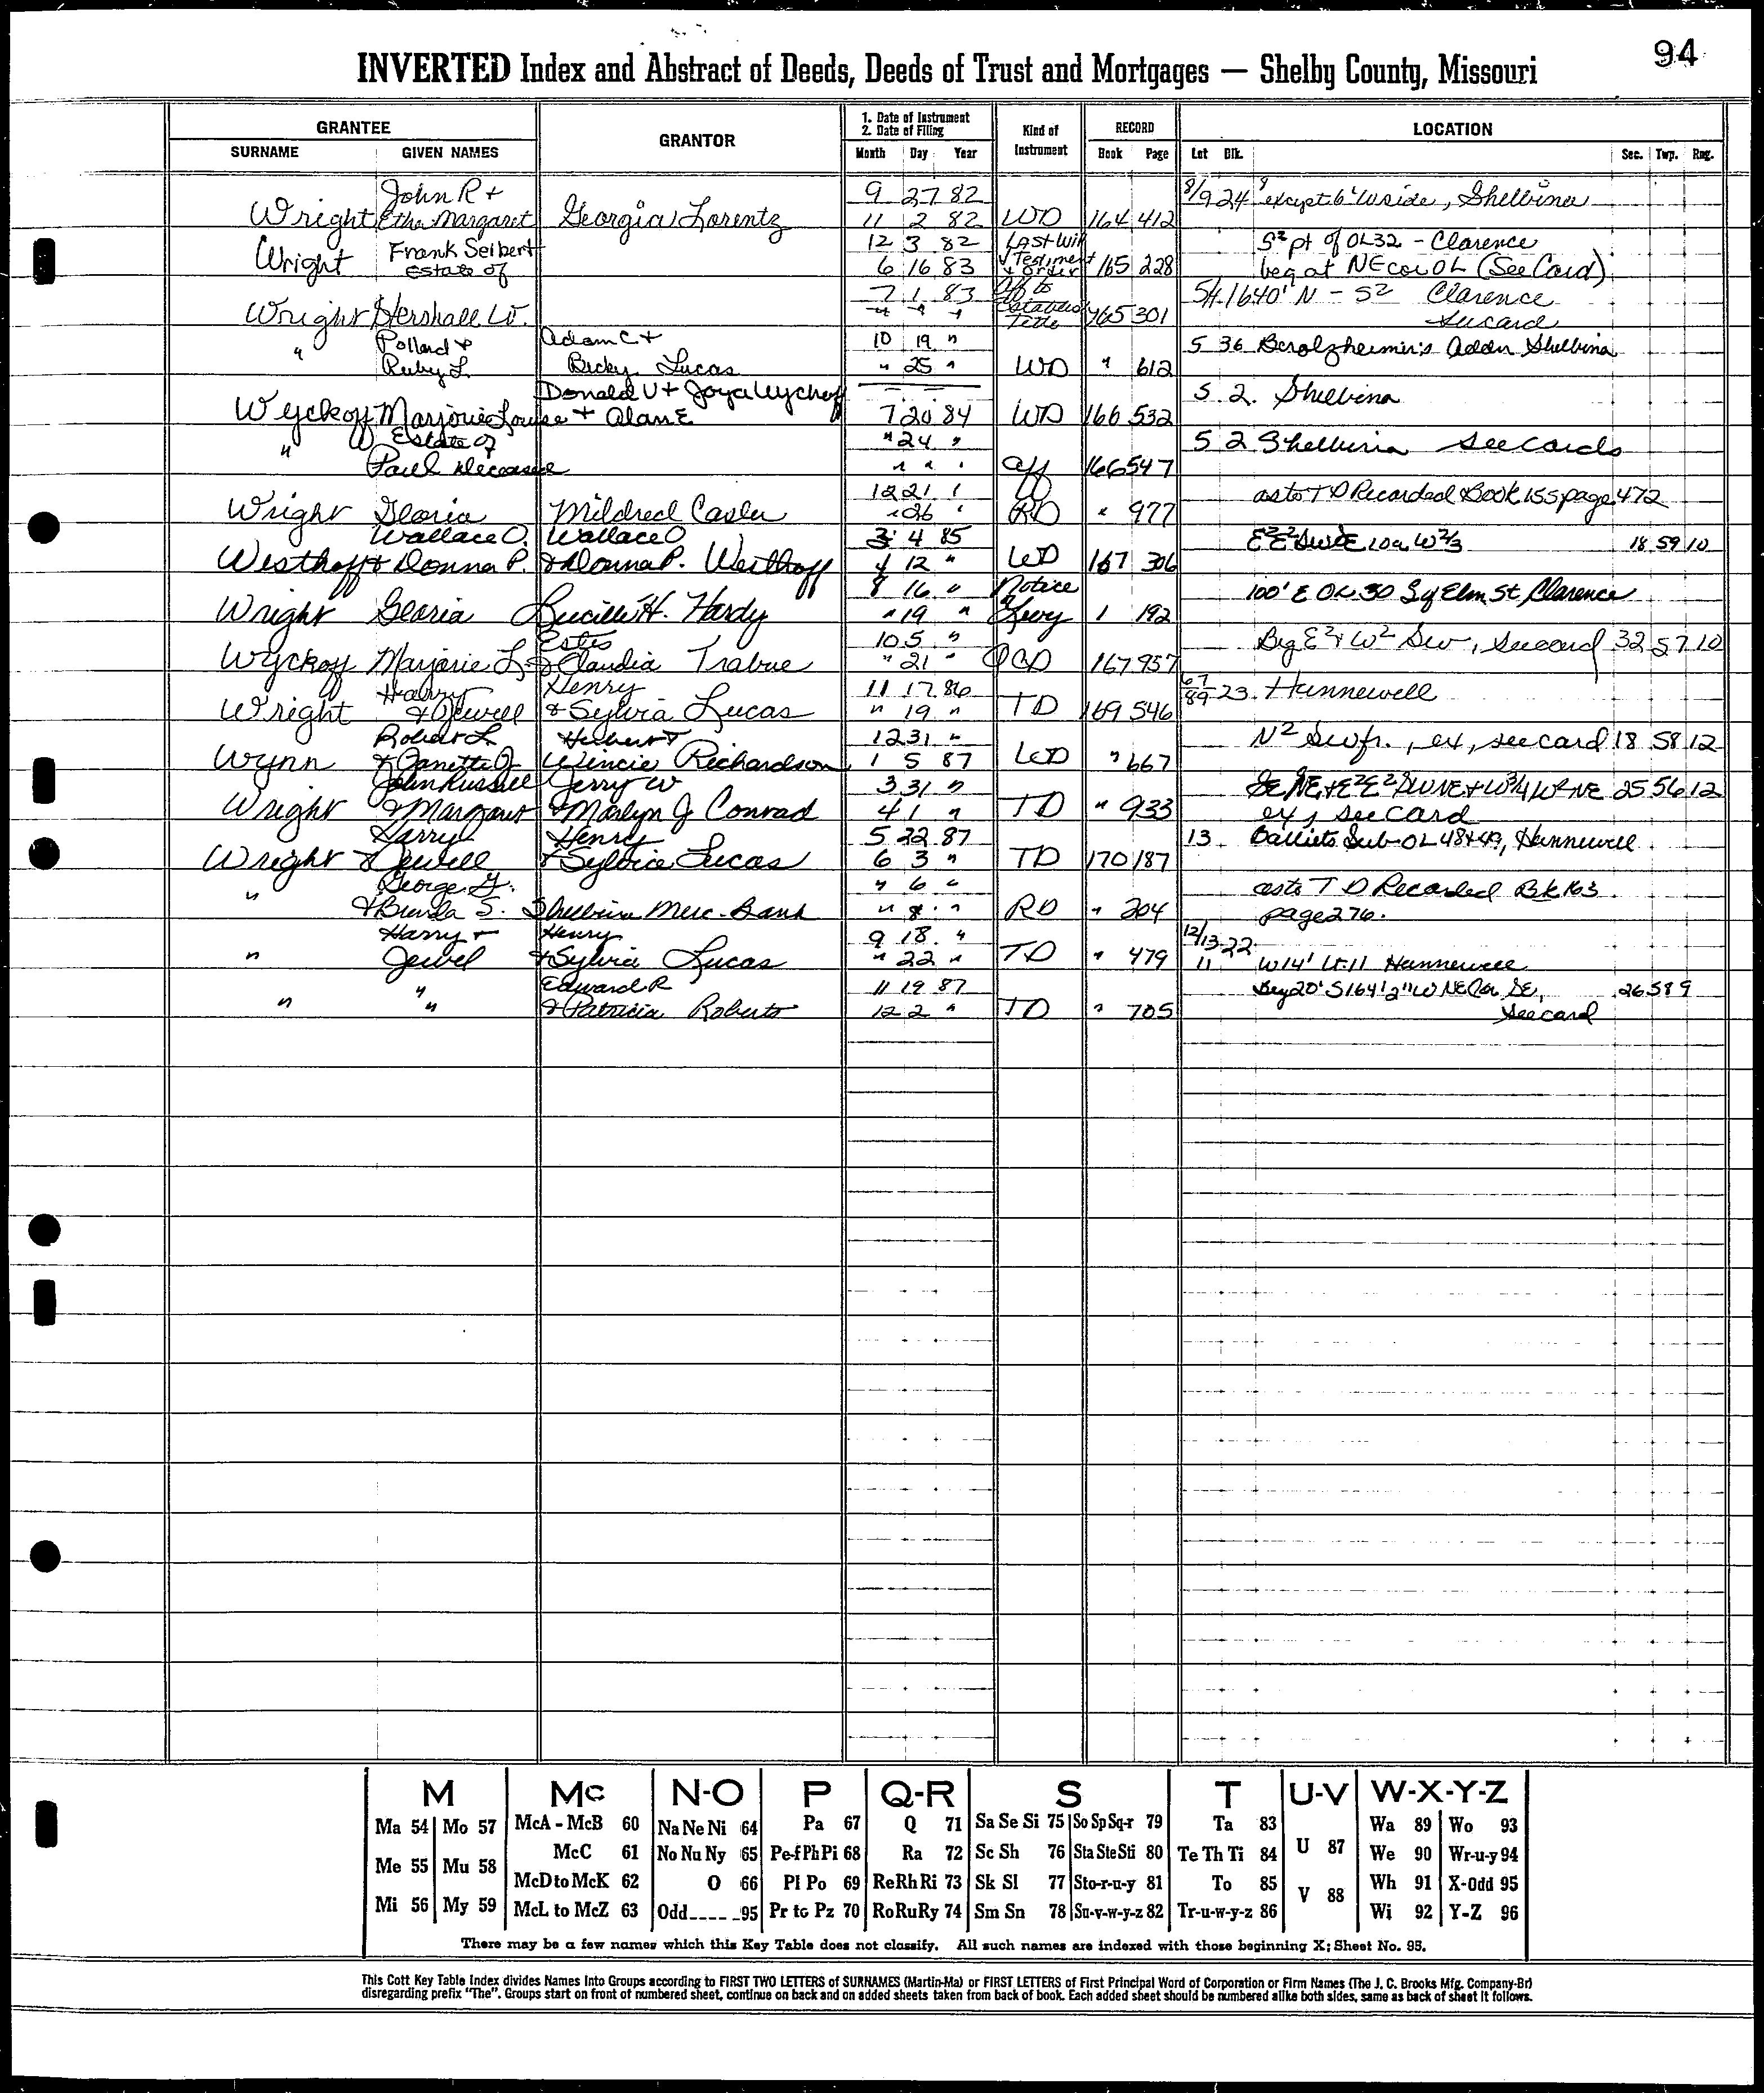 94
INVERTED Index and Abstract of Deeds, Deeds of Trust and Mortgages — Shelby County, Missouri
GRANTEE GRANTOR 1. Date of Instrument Kind of RECORD LOCATION
2. Date of Filing Instrument
SURNAME GIVEN NAMES Month Day Year Book Page Lot Blk. Sec. Twp. Rng.
John R + 9 27 82 8/9 24 except 6' W side, Shelbina
Wright Margaret Georgia Lorentz 11 2 82 WD 164 412
Wright Frank Seibert 12 3 82 Last Will S² pt of OL32 - Clarence
Estate of 6 16 83 + Order 165 228 beg at NE cor OL (See Card)
7 1 83 Aff to 1640' N - S² Clarence
Wright Hershall W. " " " Title 165 301 see card
Pollard + Adam C + 10 19 " 5 36 Berolzheimer's Addn Shelbina
" Ruby L. Becky Lucas " 25 " WD " 612
Donald V + Joya Wyckoff 5 2 Shelbina
Wyckoff Marjorie Louise + Alan E 7 20 84 WD 166 532
" Estate of " 24 " 5 2 Shelbina See cards
Paul Deceased " " " Aff 166 547
12 21 " as to TD Recorded Book 155 page 472
Wright Gloria Mildred " 26 " RD " 977
Wallace O. Wallace O 3 4 85 18 59 10
Westhoff + Donna P. & Donna P. Westhoff 4 12 " WD 167 306
8 16 " Notice 100' E OL 30 Elm St, Clarence
Wright Gloria Lucille H. Hardy " 19 " Levy 1 192
Estes 10 5 " Beg E² + W² SW, see card 32 57 10
Wyckoff Marjorie L. & Claudia Trabue " 21 " QCD 167 957
Harry Henry 11 17 86 67/89 23 Hunnewell
Wright & Jewell & Sylvia Lucas " 19 " TD 169 546
Robert L. Herbert T 12 31 " N² SW fr., ex, see card 18 58 12
Wynn & Janette J Wincie Richardson 1 5 87 WD " 667
John Russell Jerry W 3 31 " SE NE + E² E² SW NE + W 3/4 W² NE 25 56 12
Wright & Margaret & Marlyn J Conrad 4 1 " TD " 933 ex, see card
Harry Henry 5 22 87 13 Balliets Sub-OL 48+49, Hunnewell
Wright & Jewell & Sylvia Lucas 6 3 " TD 170 187
George " 6 " as to TD Recorded Bk 163
" & Brenda S. Shelbina Merc. Bank " 8 " RD " 204 page 276.
Harry + Henry 9 18 " 12/13 22
" Jewel & Sylvia Lucas " 22 " TD " 479 11 W 14' Lt 11 Hunnewell
Edward R 11 19 87 Beg 20' S 164' 2" W NE Cor SE, 26 58 9
" " & Patricia Roberts 12 2 " TD " 705 See card
M Mc N-O P Q-R S T U-V W-X-Y-Z
Ma 54 Mo 57 McA - McB 60 Na Ne Ni 64 Pa 67 Q 71 Sa Se Si 75 So Sp Sq-r 79 Ta 83 U 87 Wa 89 Wo 93
Me 55 Mu 58 McC 61 No Nu Ny 65 Pe-f Ph Pi 68 Ra 72 Sc Sh 76 Sta Ste Sti 80 Te Th Ti 84 V 88 We 90 Wr-u-y 94
McD to McK 62 O 66 Pl Po 69 Re Rh Ri 73 Sk Sl 77 Sto-r-u-y 81 To 85 Wh 91 X-Odd 95
Mi 56 My 59 McL to McZ 63 Odd____95 Pr to Pz 70 Ro Ru Ry 74 Sm Sn 78 Su-v-w-y-z 82 Tr-u-w-y-z 86 Wi 92 Y-Z 96
There may be a few names which this Key Table does not classify. All such names are indexed with those beginning X; Sheet No. 95.
This Cott Key Table Index divides Names Into Groups according to FIRST TWO LETTERS of SURNAMES (Martin-Ma) or FIRST LETTERS of First Principal Word of Corporation or Firm Names (The J. C. Brooks Mfg. Company-Br)
disregarding prefix "The". Groups start on front of numbered sheet, continue on back and on added sheets taken from back of book. Each added sheet should be numbered alike both sides, same as back of sheet it follows.